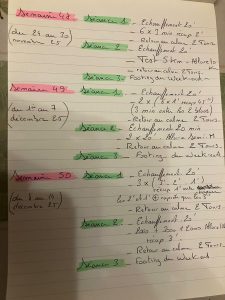 Semaine 48 Séance 1 - Echauffement 20'
- 6 x 3 min recup 2'
(du 24 au 30 novembre 25) - Retour au calme 2 Tours
Séance 2 - Echauffement 20'
- Test 5 km - Allure
- retour au calme 2 Tours.
Séance 3 - Footing du week end
Semaine 49 Séance 1 - Echauffement 20'
- 2 x (
(du 1er au 7 décembre 25) (3 min entre les 2 blocs)
- Retour au calme 2 Tours.
Séance 2 - Echauffement 20 min
- 2 x 20' Allure Semi-M
- Retour au calme 2 Tours.
Séance 3 - Footing du week end
Semaine 50 Séance 1 - Echauffement 20'
- 3 x (3' - 2' - 1')
(du 8 au 14 décembre 25) recup 1' entre
- Retour au calme 2 Tours.
Séance 2 - Echauffement 20'
recup 3'
- Retour au calme 2 Tours.
Séance 3 - Footing du week end